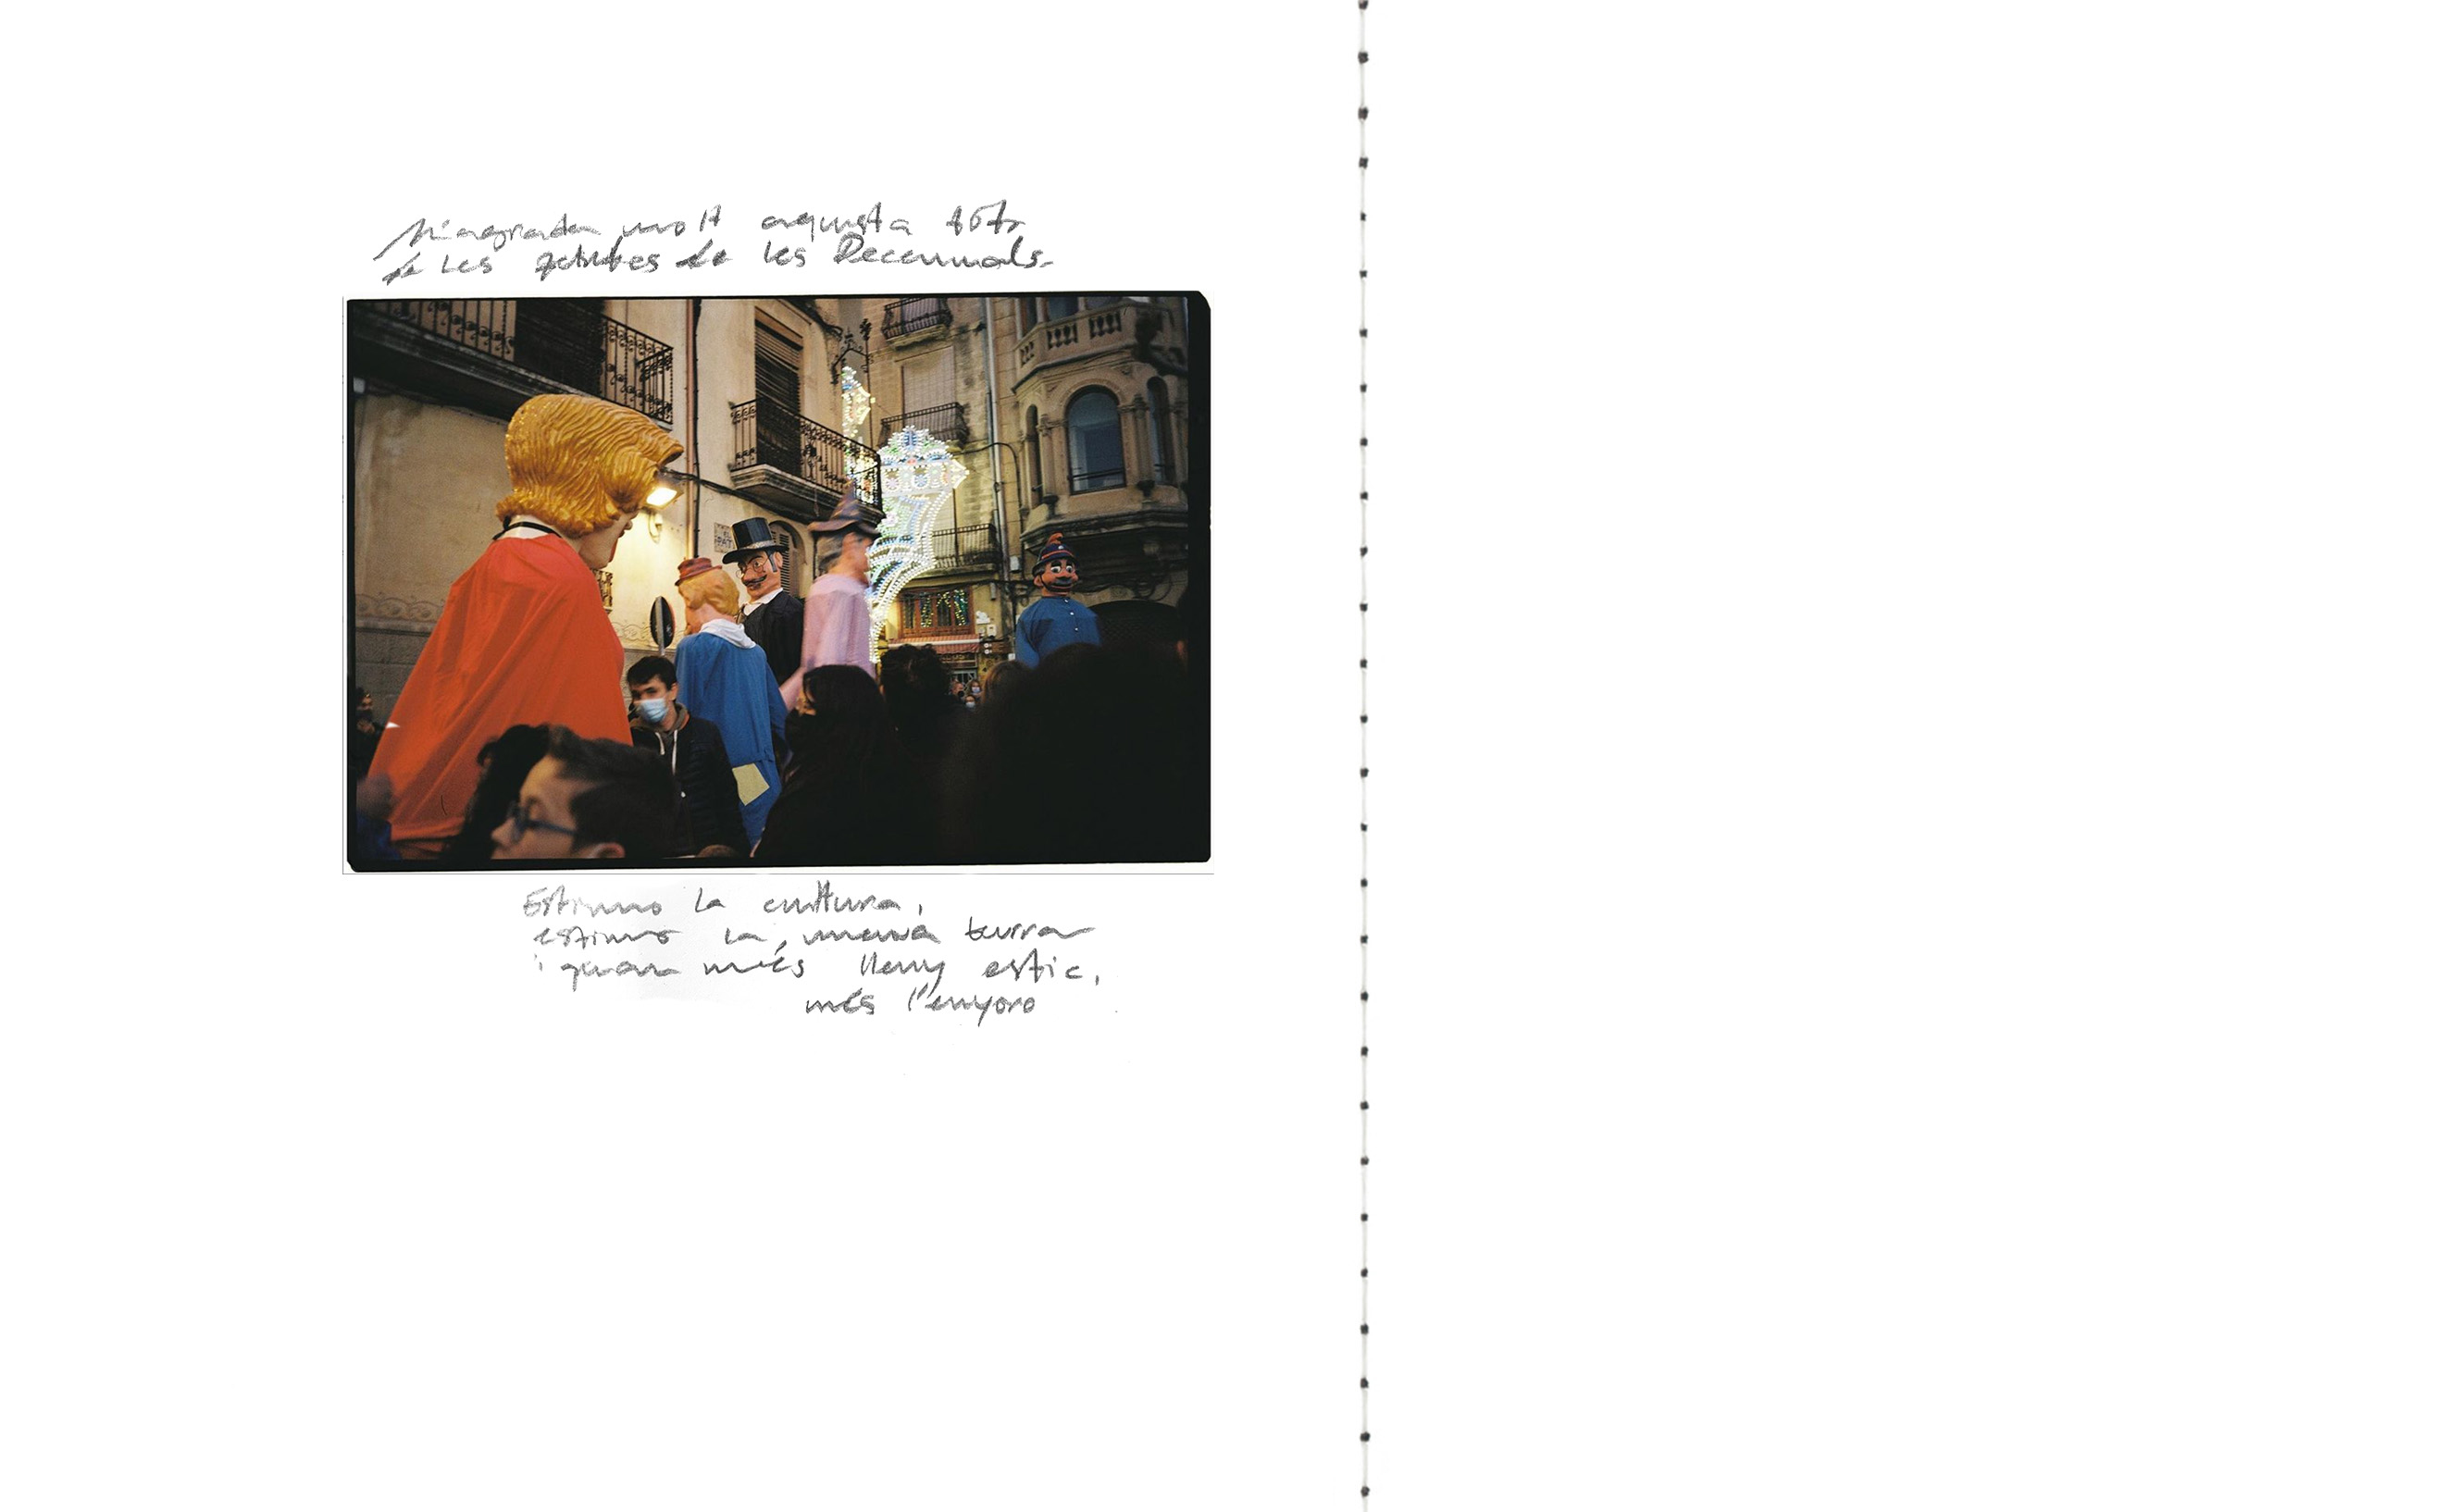 M'agrada molt aquesta foto
de les de les Decennals.
Estimo la cultura,
estimo la meva terra
i quan més lluny estic,
més l'enyoro